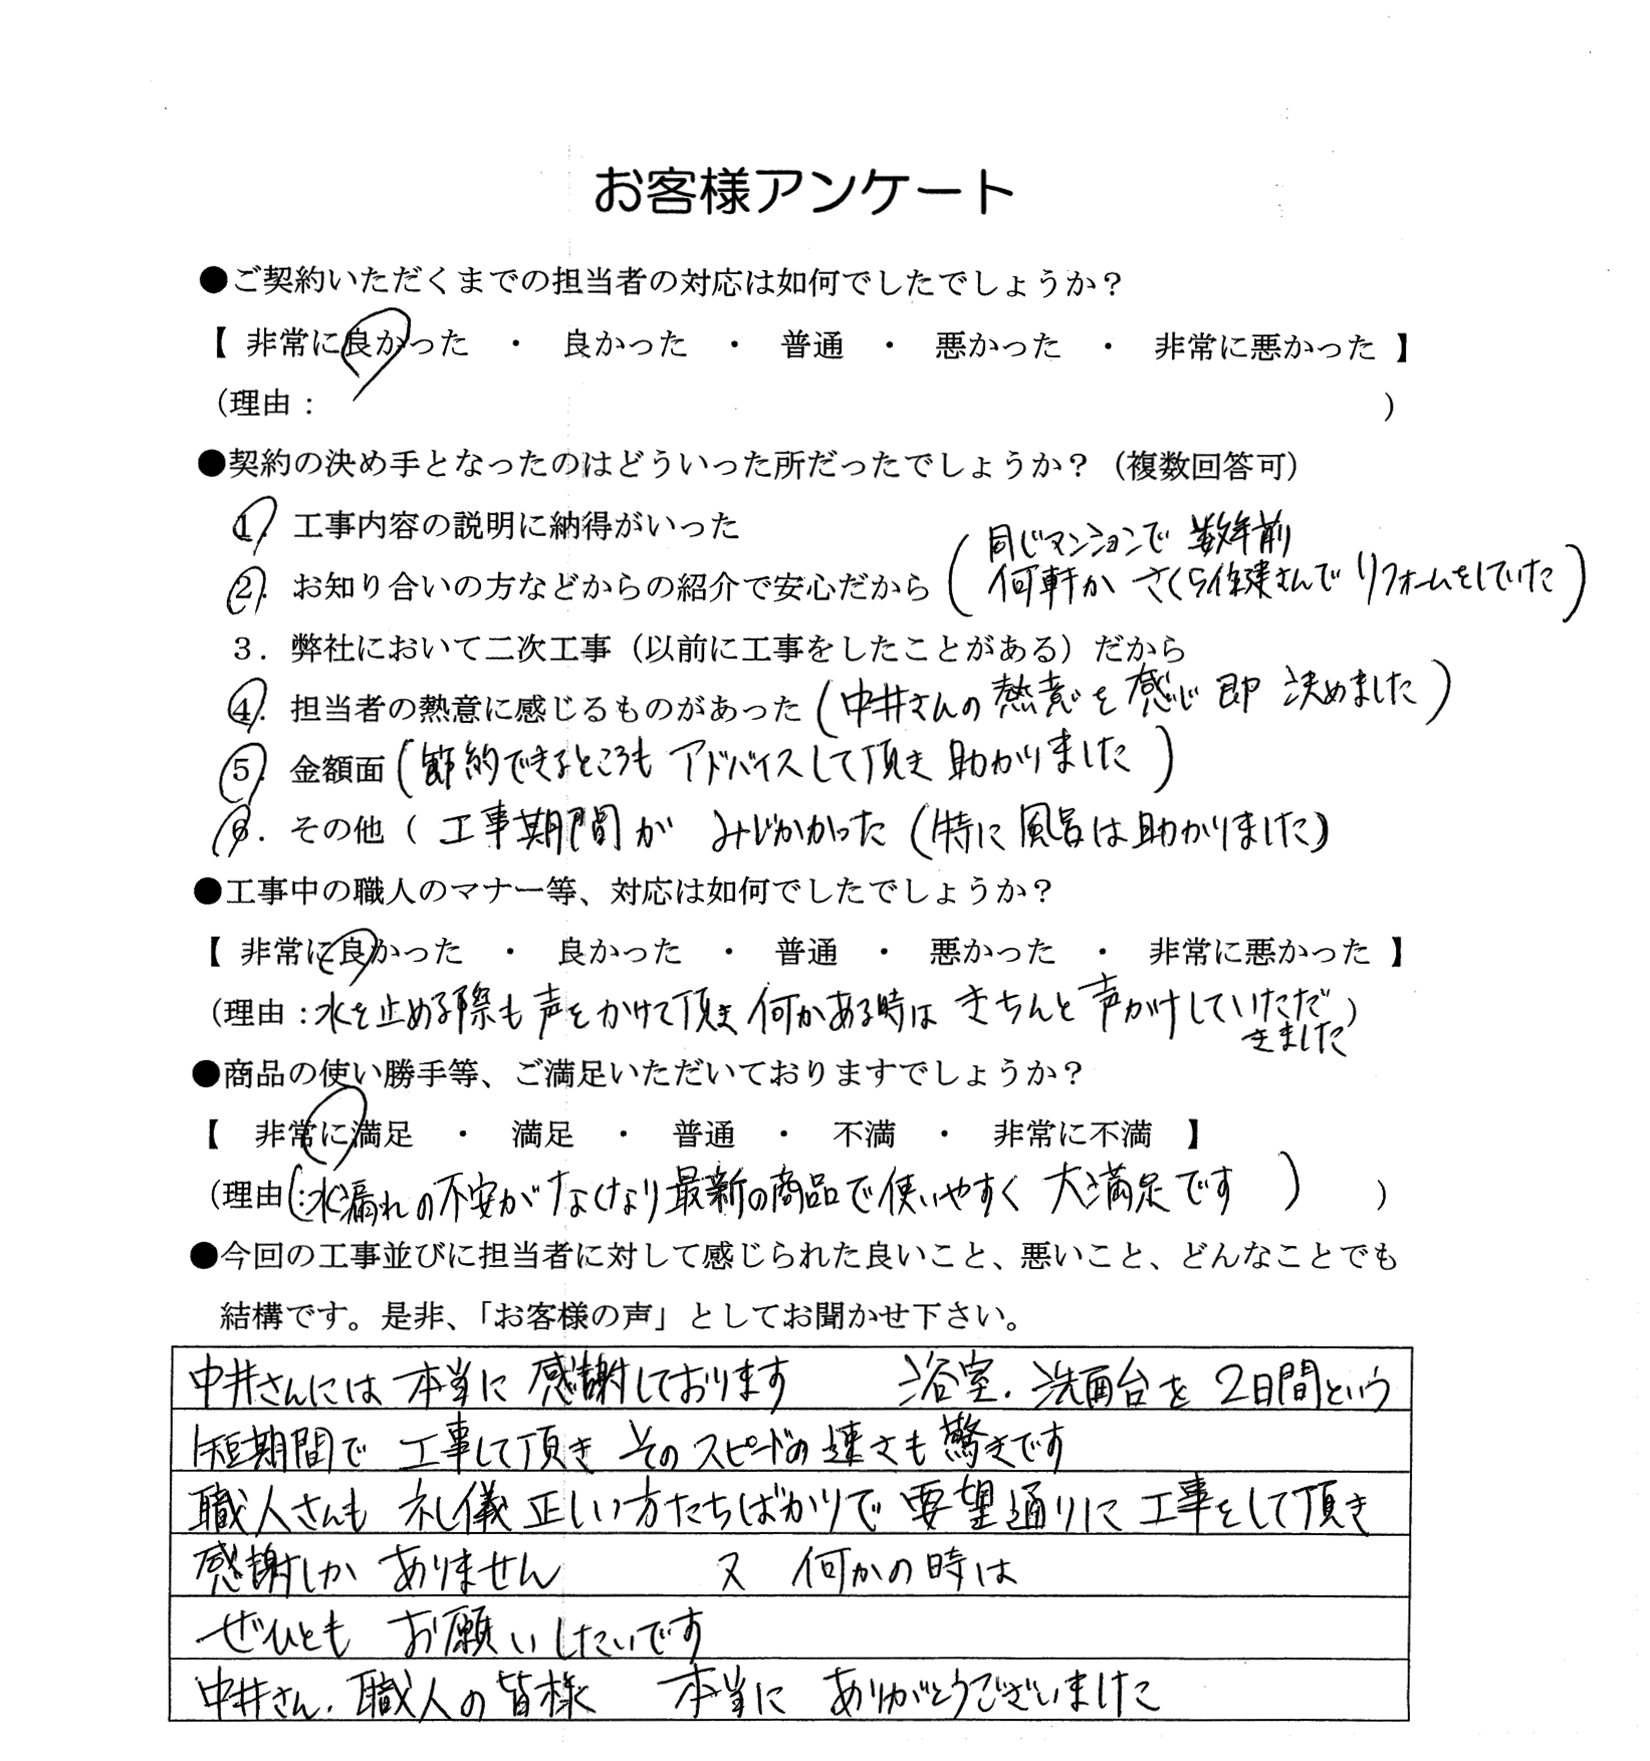 お客様アンケート
●ご契約いただくまでの担当者の対応は如何でしたでしょうか？
【 非常に良かった ・ 良かった ・ 普通 ・ 悪かった ・ 非常に悪かった 】
（理由： ）
●契約の決め手となったのはどういった所だったでしょうか？（複数回答可）
1. 工事内容の説明に納得がいった
2. お知り合いの方などからの紹介で安心だから（同じマンションで 数年前
何軒か さくら住建さんで リフォームをしていた）
３．弊社において二次工事（以前に工事をしたことがある）だから
4. 担当者の熱意に感じるものがあった（中井さんの 熱意を 感じ 即 決めました）
5. 金額面（節約できるところも アドバイスして頂き 助かりました）
6. その他（ 工事期間が みじかかった（特に 風呂は助かりました）
●工事中の職人のマナー等、対応は如何でしたでしょうか？
【 非常に良かった ・ 良かった ・ 普通 ・ 悪かった ・ 非常に悪かった 】
（理由：水を止める際も 声をかけて頂き 何かある時は きちんと 声がけしていただ）
きました
●商品の使い勝手等、ご満足いただいておりますでしょうか？
【 非常に満足 ・ 満足 ・ 普通 ・ 不満 ・ 非常に不満 】
（理由（：水漏れの不安がなくなり 最新の商品で使いやすく 大満足です ） ）
●今回の工事並びに担当者に対して感じられた良いこと、悪いこと、どんなことでも
結構です。是非、「お客様の声」としてお聞かせ下さい。
中井さんには 本当に 感謝しております 浴室．洗面台を 2日間という
短期間で 工事して頂き そのスピードの速さも 驚きです
職人さんも 礼儀正しい方たちばかりで 要望通りに 工事をして頂き
感謝しか ありません 又 何かの時は
ぜひとも お願いしたいです
中井さん．職人の皆様 本当に ありがとうございました